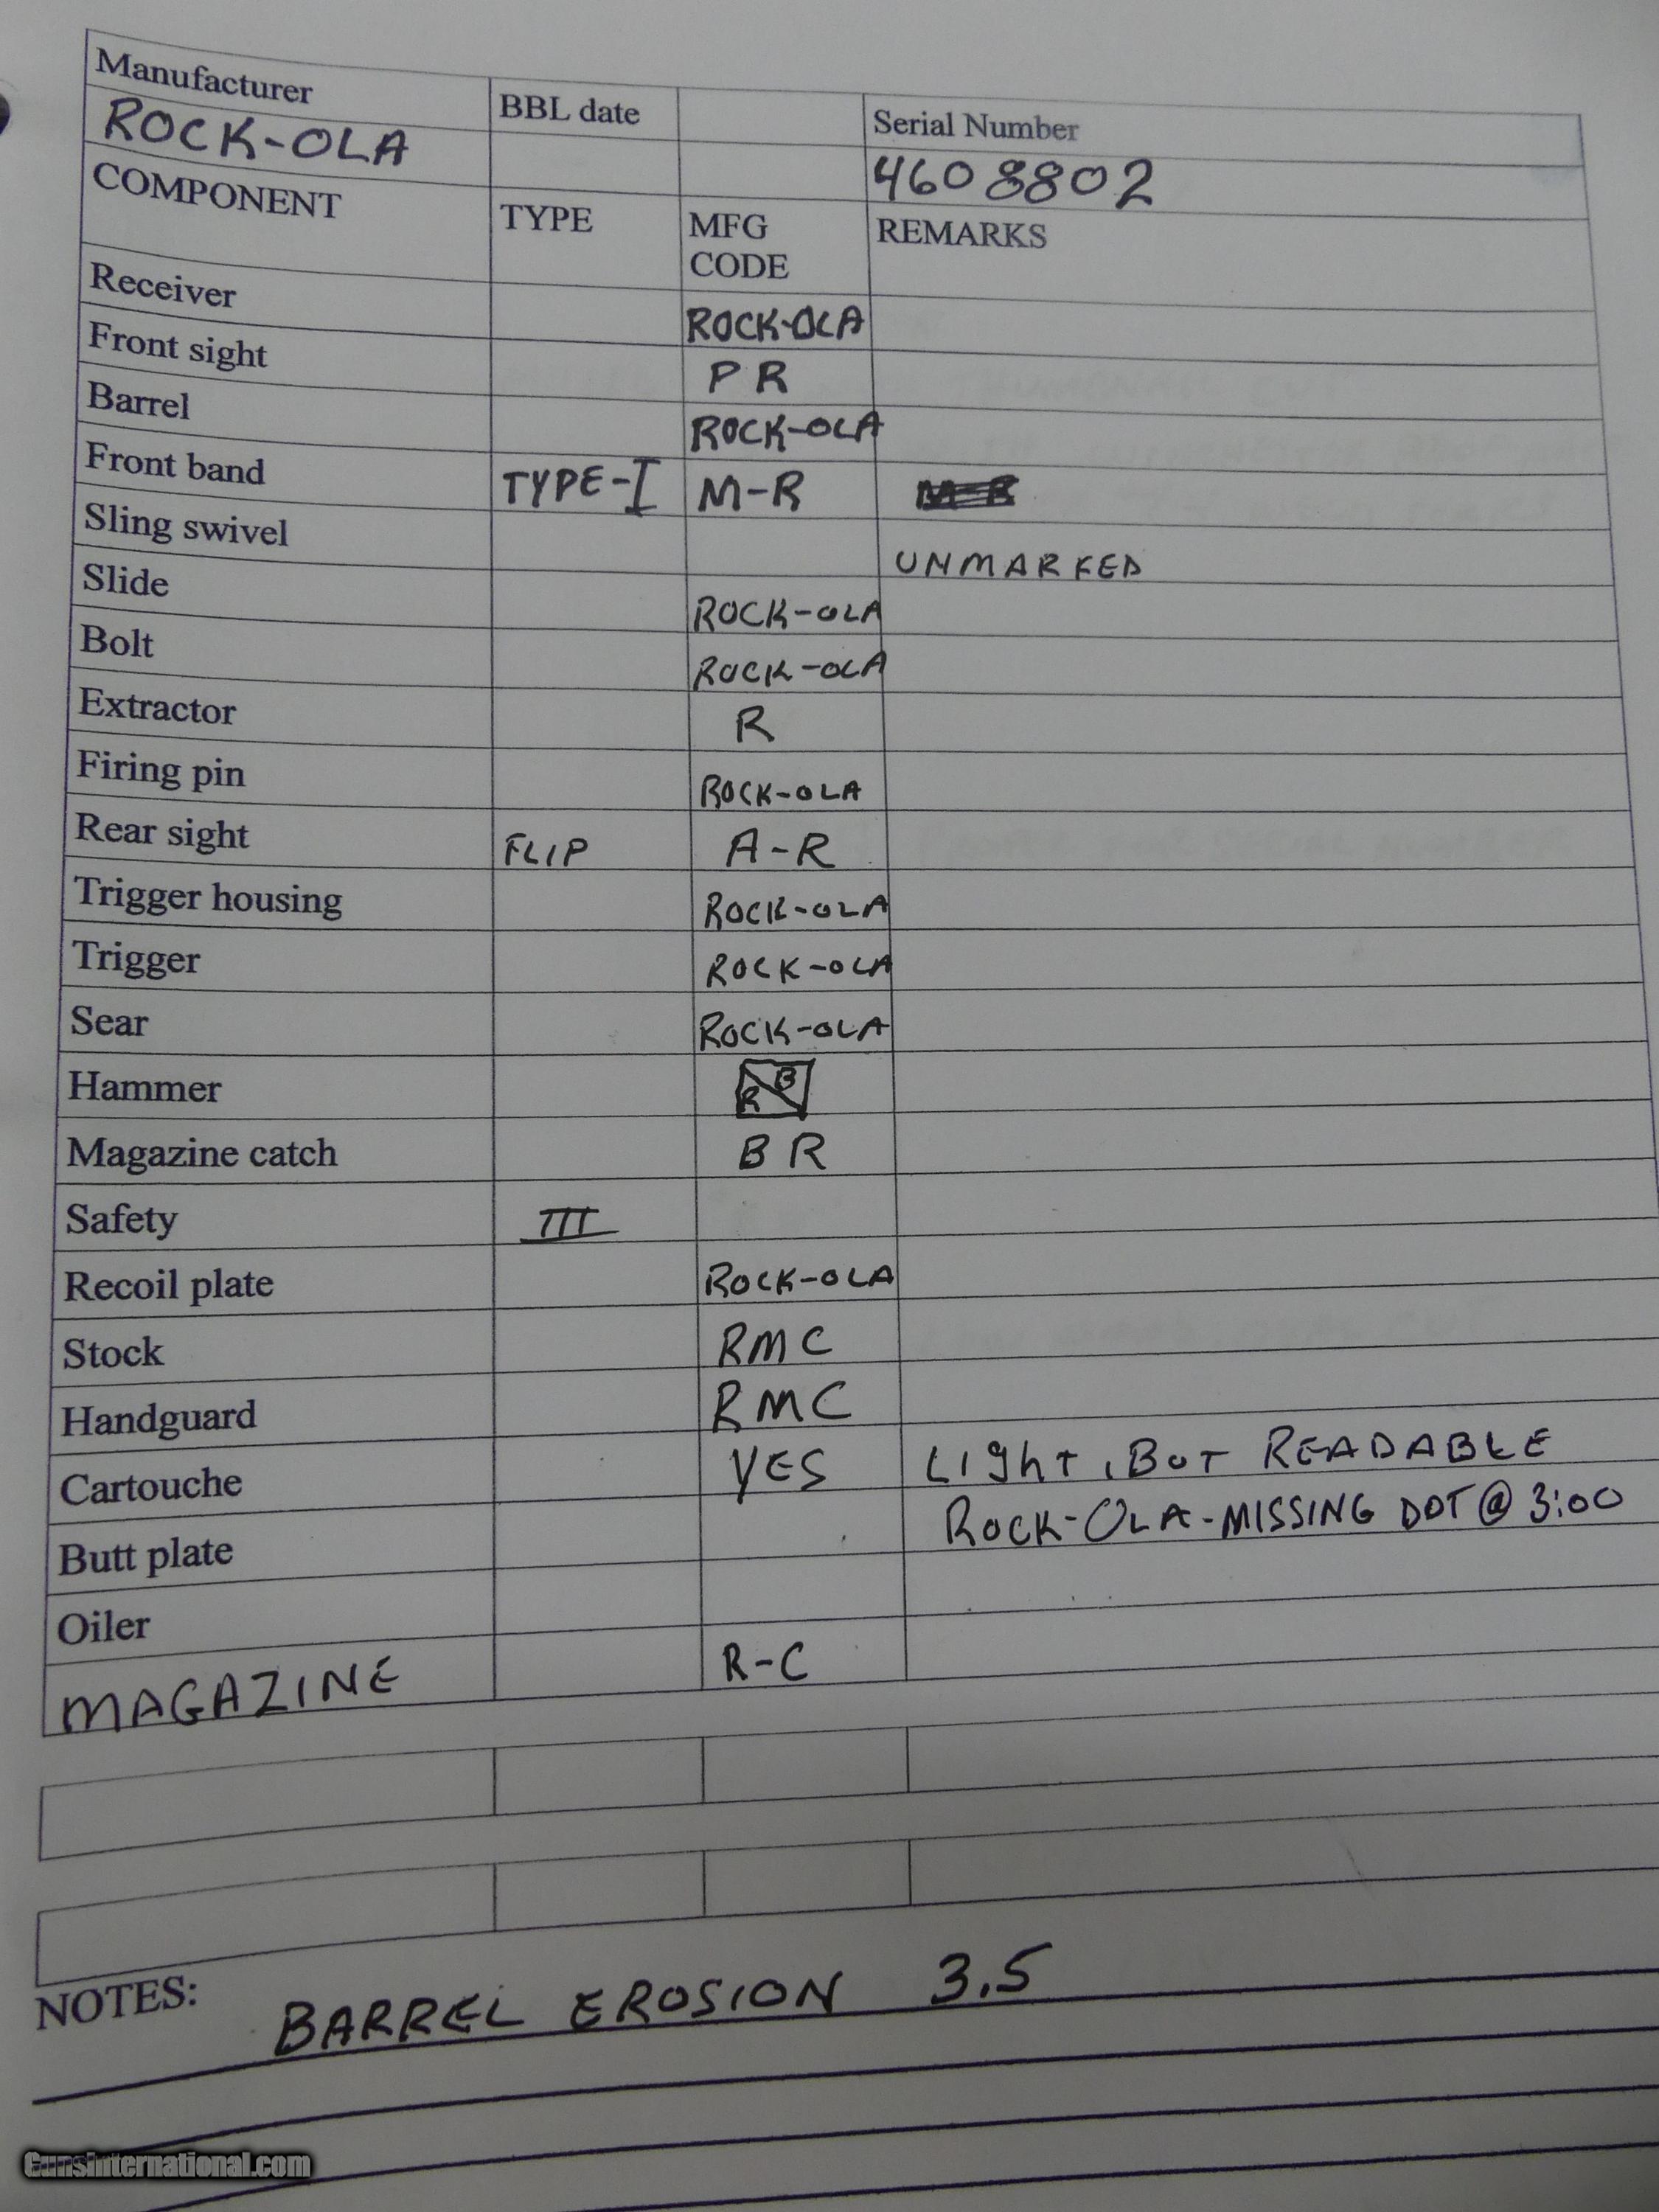 Manufacturer BBL date Serial Number
ROCK-OLA 4608802
COMPONENT TYPE MFG CODE REMARKS
Receiver ROCK-OLA
Front sight PR
Barrel ROCK-OLA
Front band TYPE-I M-R
Sling swivel UNMARKED
Slide ROCK-OLA
Bolt ROCK-OLA
Extractor R
Firing pin ROCK-OLA
Rear sight FLIP A-R
Trigger housing ROCK-OLA
Trigger ROCK-OLA
Sear ROCK-OLA
Hammer R B
Magazine catch BR
Safety III
Recoil plate ROCK-OLA
Stock RMC
Handguard RMC
Cartouche YES LIghT, BUT READABLE
Butt plate ROCK-OLA-MISSING DOT @ 3:00
Oiler
MAGAZINE R-C
NOTES: BARREL EROSION 3.5
GunsInternational.com